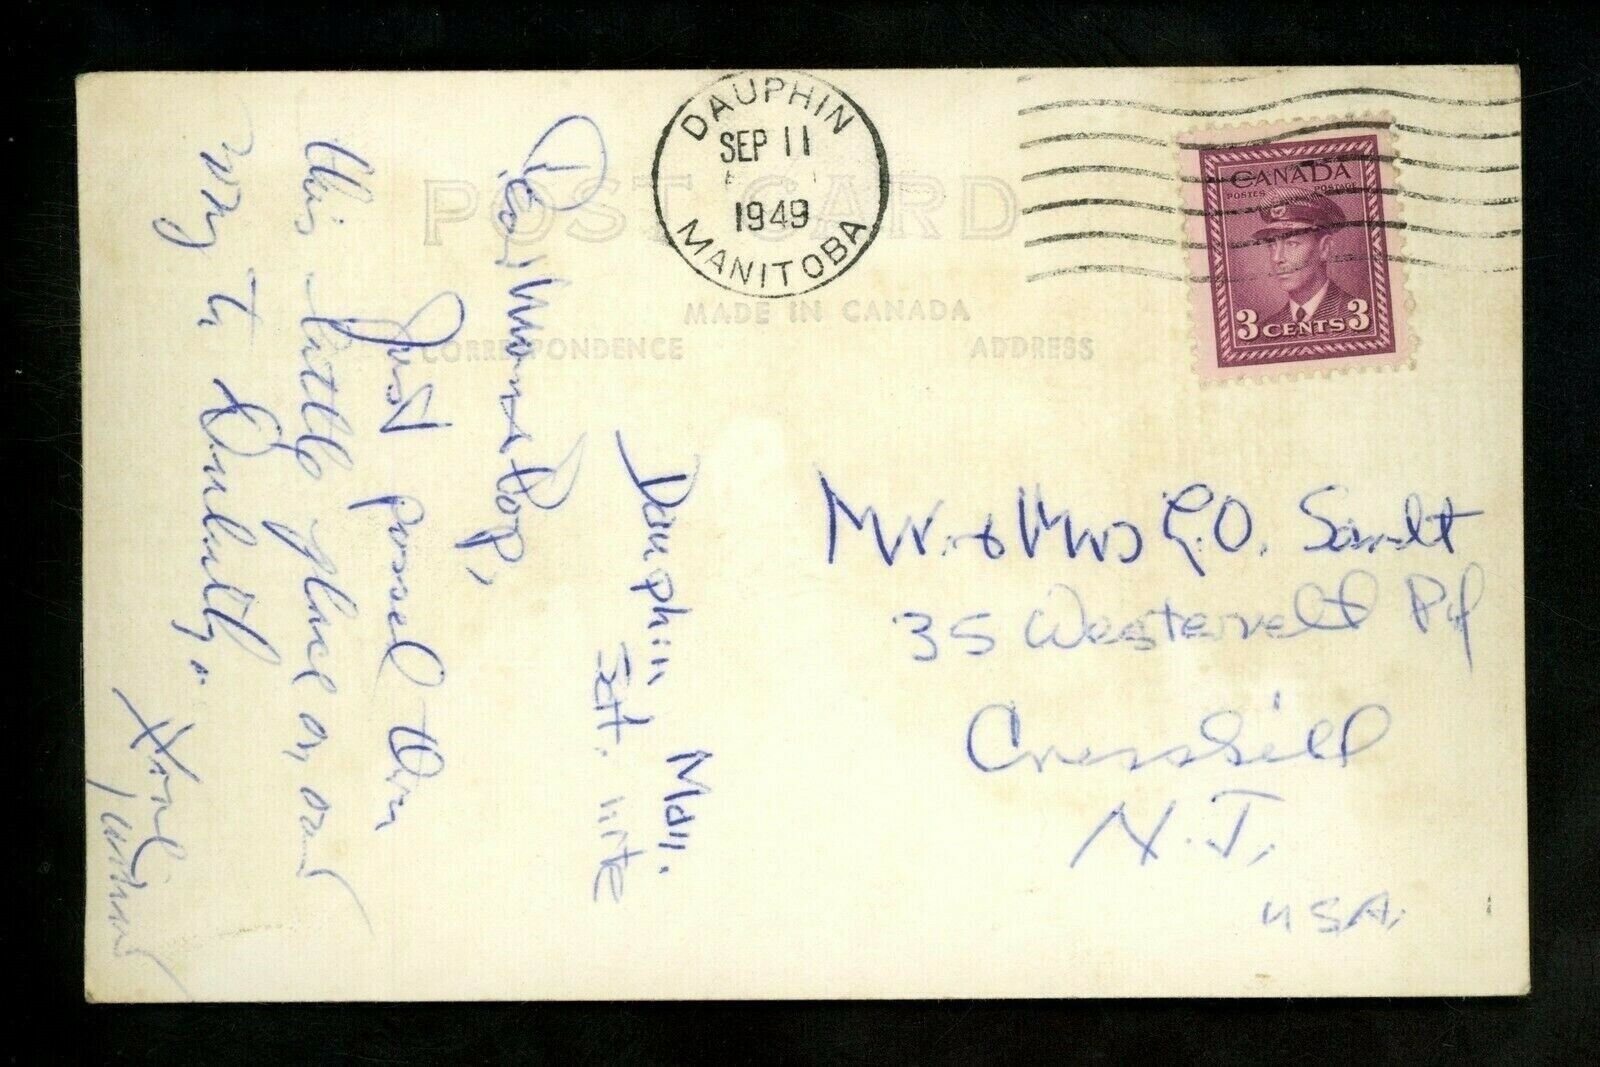 DAUPHIN
SEP 11
1949
MANITOBA
CANADA
POSTES POSTAGE
3 CENTS 3
POST CARD
MADE IN CANADA
CORRESPONDENCE
ADDRESS
Dauphin, Man.
Sat. nite
Dear Mom & Pop,
Just passed thru
this little place on our
way to
Mr. & Mrs G.O. Sandt
35 Westervelt Pl
Cresskill
N.J.
USA.